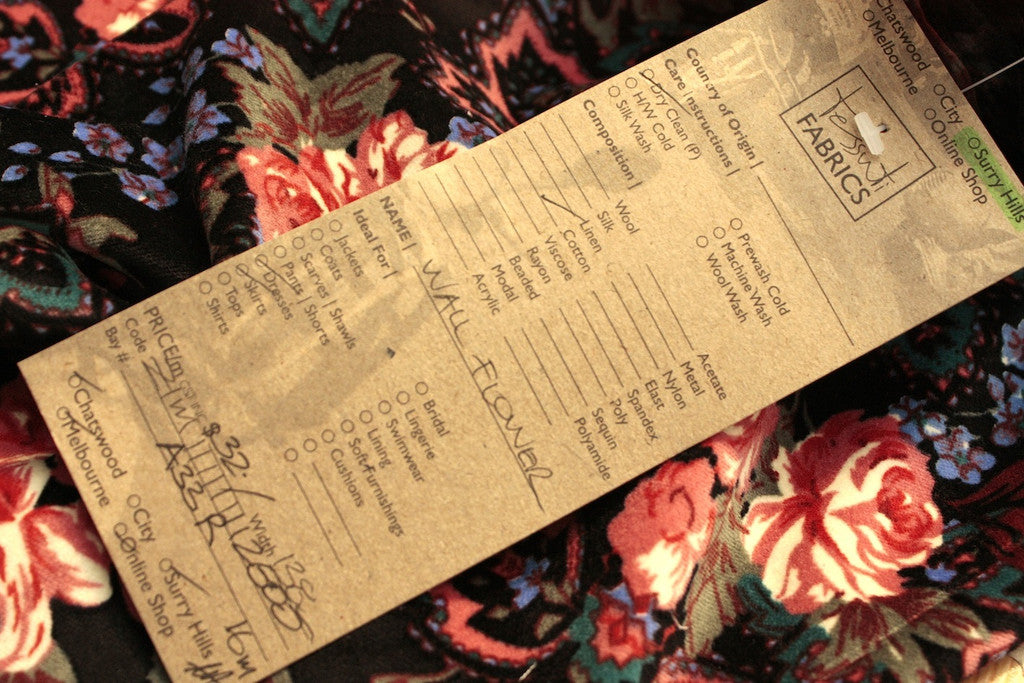 Chatswood
Melbourne
City
Online Shop
Surry Hills
Tessuti
FABRICS
Country of Origin |
Care Instructions |
Dry Clean (P)
H/W Cold
Silk Wash
Prewash Cold
Machine Wash
Wool Wash
Composition |
Wool
Silk
Linen
Cotton
Viscose
Rayon
Beaded
Modal
Acrylic
Acetate
Metal
Nylon
Elast
Spandex
Poly
Sequin
Polyamide
NAME | WALL FLOWER
Ideal For |
Jackets
Coats
Scarves | Shawls
Pants | Shorts
Dresses
Skirts
Tops
Shirts
Bridal
Lingerie
Swimwear
Lining
Soft-Furnishings
Cushions
PRICE/m $32/ Width |
Code
Bay #: A33R 16m
Chatswood
Melbourne
City
Online Shop
Surry Hills